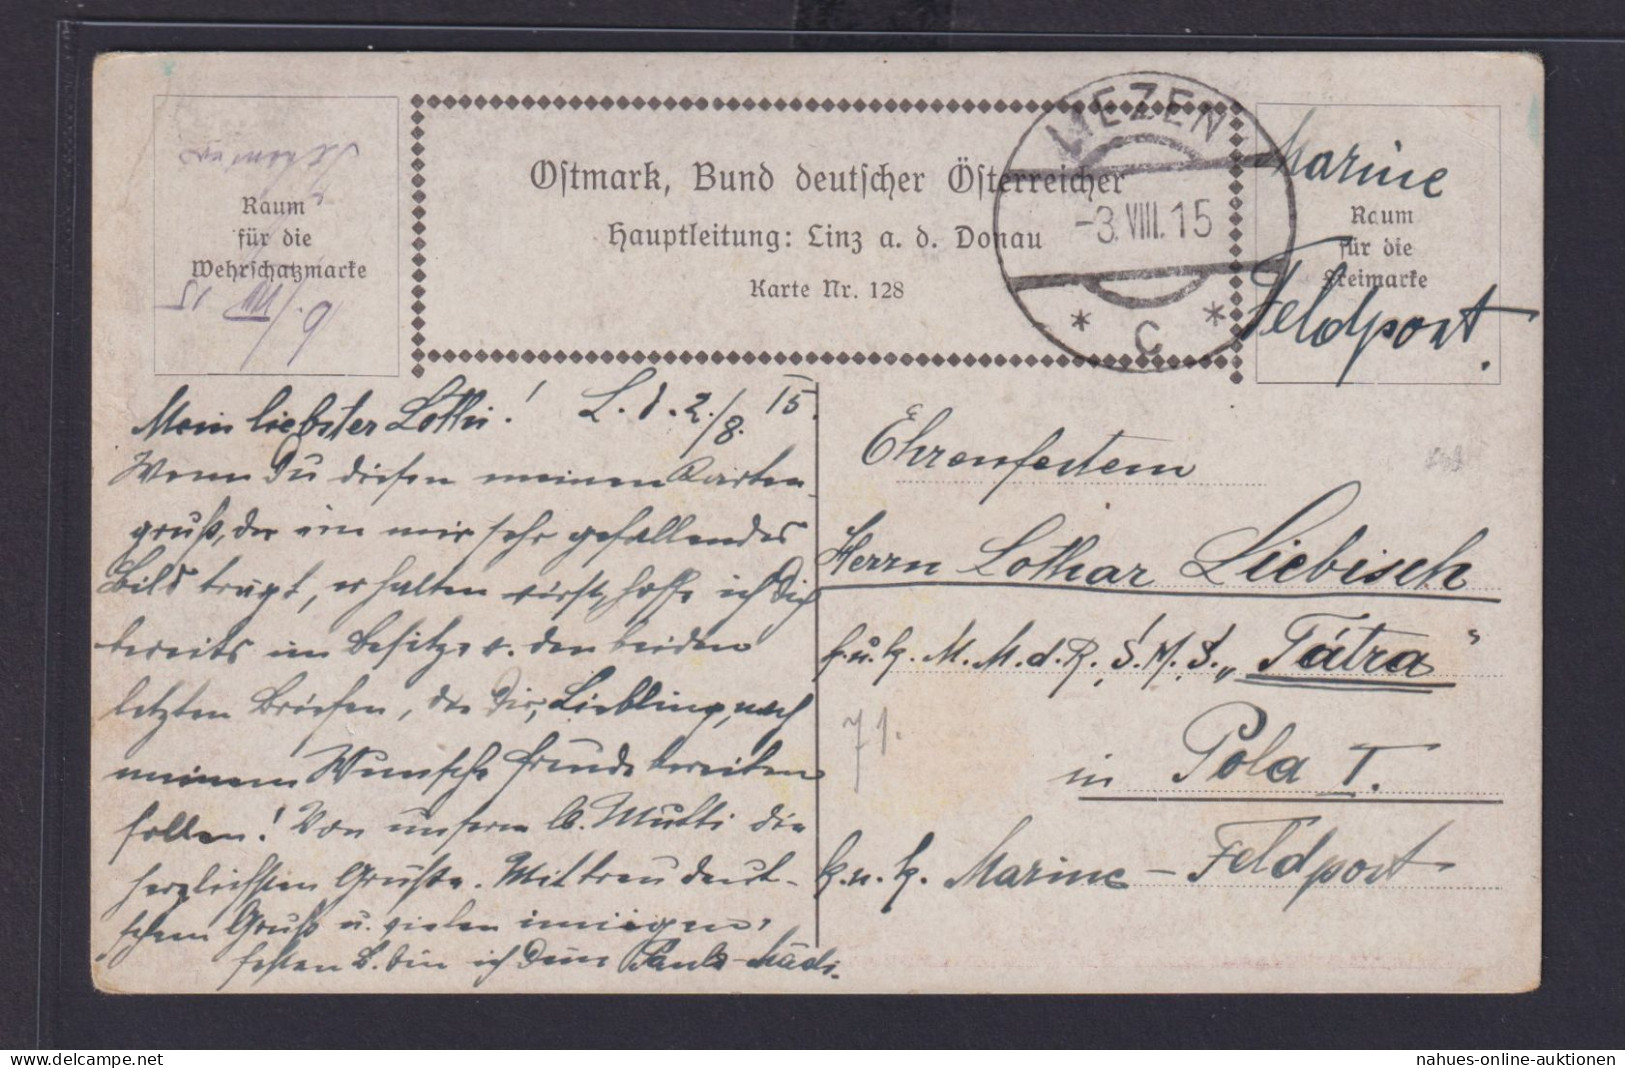 Raum
für die
Wehrschatzmarke
6./VIII 15
Ostmark, Bund deutscher Österreicher
Hauptleitung: Linz a. d. Donau
Karte Nr. 128
LIEZEN
-3.VIII.15
* C *
Marine
Raum
für die
Freimarke
Feldpost.
Mein liebster Lothi! L. d. 2./8. 15.
Wenn Du diesen meinen Karten-
gruß, der ein mir sehr gefallendes
Bild trägt, erhalten wirst, hoffe ich Dich
bereits im Besitze v. den beiden
letzten Briefen, die Dir, Liebling, nach
meinem Wunsche Freude bereiten
sollen! Von unserm lb. Mutti die
herzlichsten Grüße. Mit treudeut-
schem Gruß u. vielen innigen,
festen B. bin ich Dein
Ehrenfestem
Herrn Lothar Liebisch
k. u. k. M. M. d. R. S. M. S. „Tátra"
in Pola I.
k. u. k. Marine-Feldpost
71.
nahues-online-auktionen